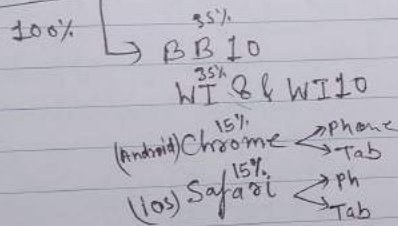 35%
100% → BB10
35%
WI 8 & WI10
15%
(Android) Chrome → Phone
→ Tab
15%
(ios) Safari → Ph
→ Tab